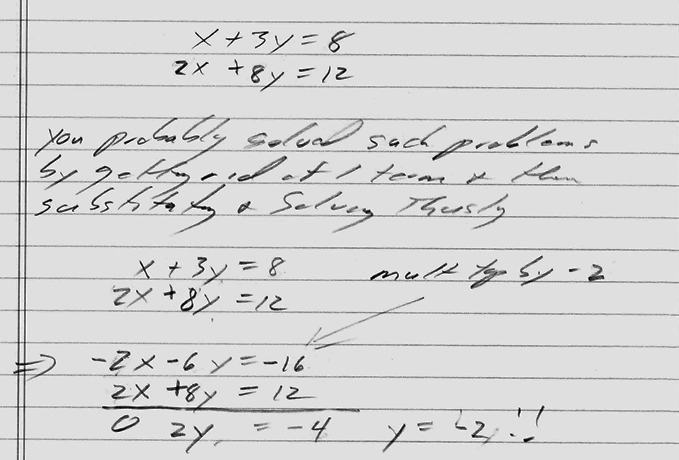 x + 3y = 8
2x + 8y = 12
You probably solved such problems
by getting rid of 1 term & then
substituting & Solving Thusly
x + 3y = 8 mult top by -2
2x + 8y = 12
=> -2x - 6y = -16
2x + 8y = 12
0 2y = -4 y = -2 !!